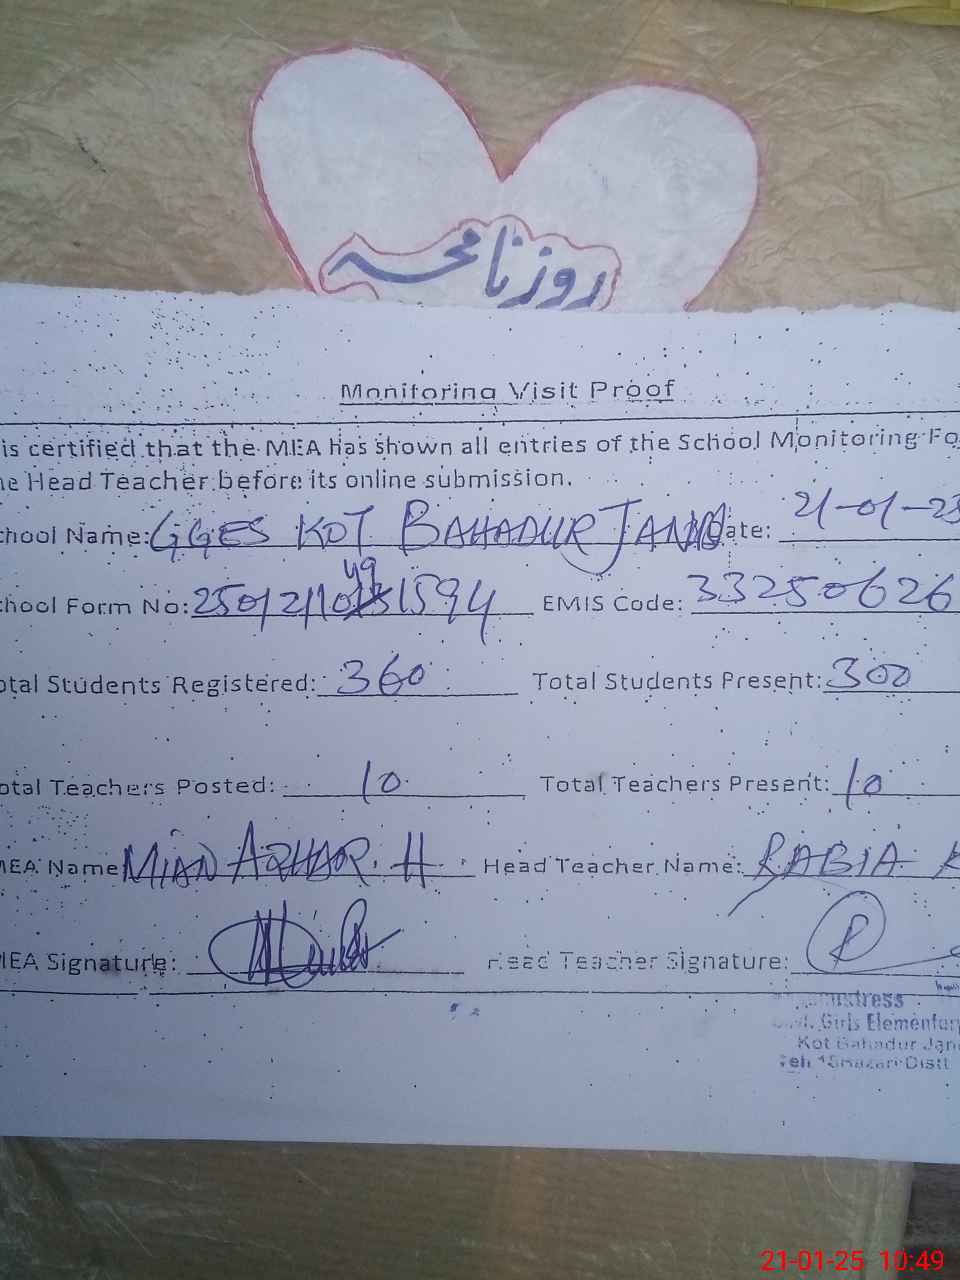 روزنامچہ
Monitoring Visit Proof
is certified that the MEA has shown all entries of the School Monitoring Fo
he Head Teacher before its online submission.
chool Name: GGES KOT BAHADUR JAND ate: 21-01-25
chool Form No: EMIS Code: 33250626
otal Students Registered: 360 Total Students Present: 300
otal Teachers Posted: 10 Total Teachers Present: 10
MEA Name MIAN AZHAR. H Head Teacher Name: RABIA K
MEA Signature: Head Teacher Signature:
Girls Elementary
Kot Bahadur Jan
21-01-25 10:49